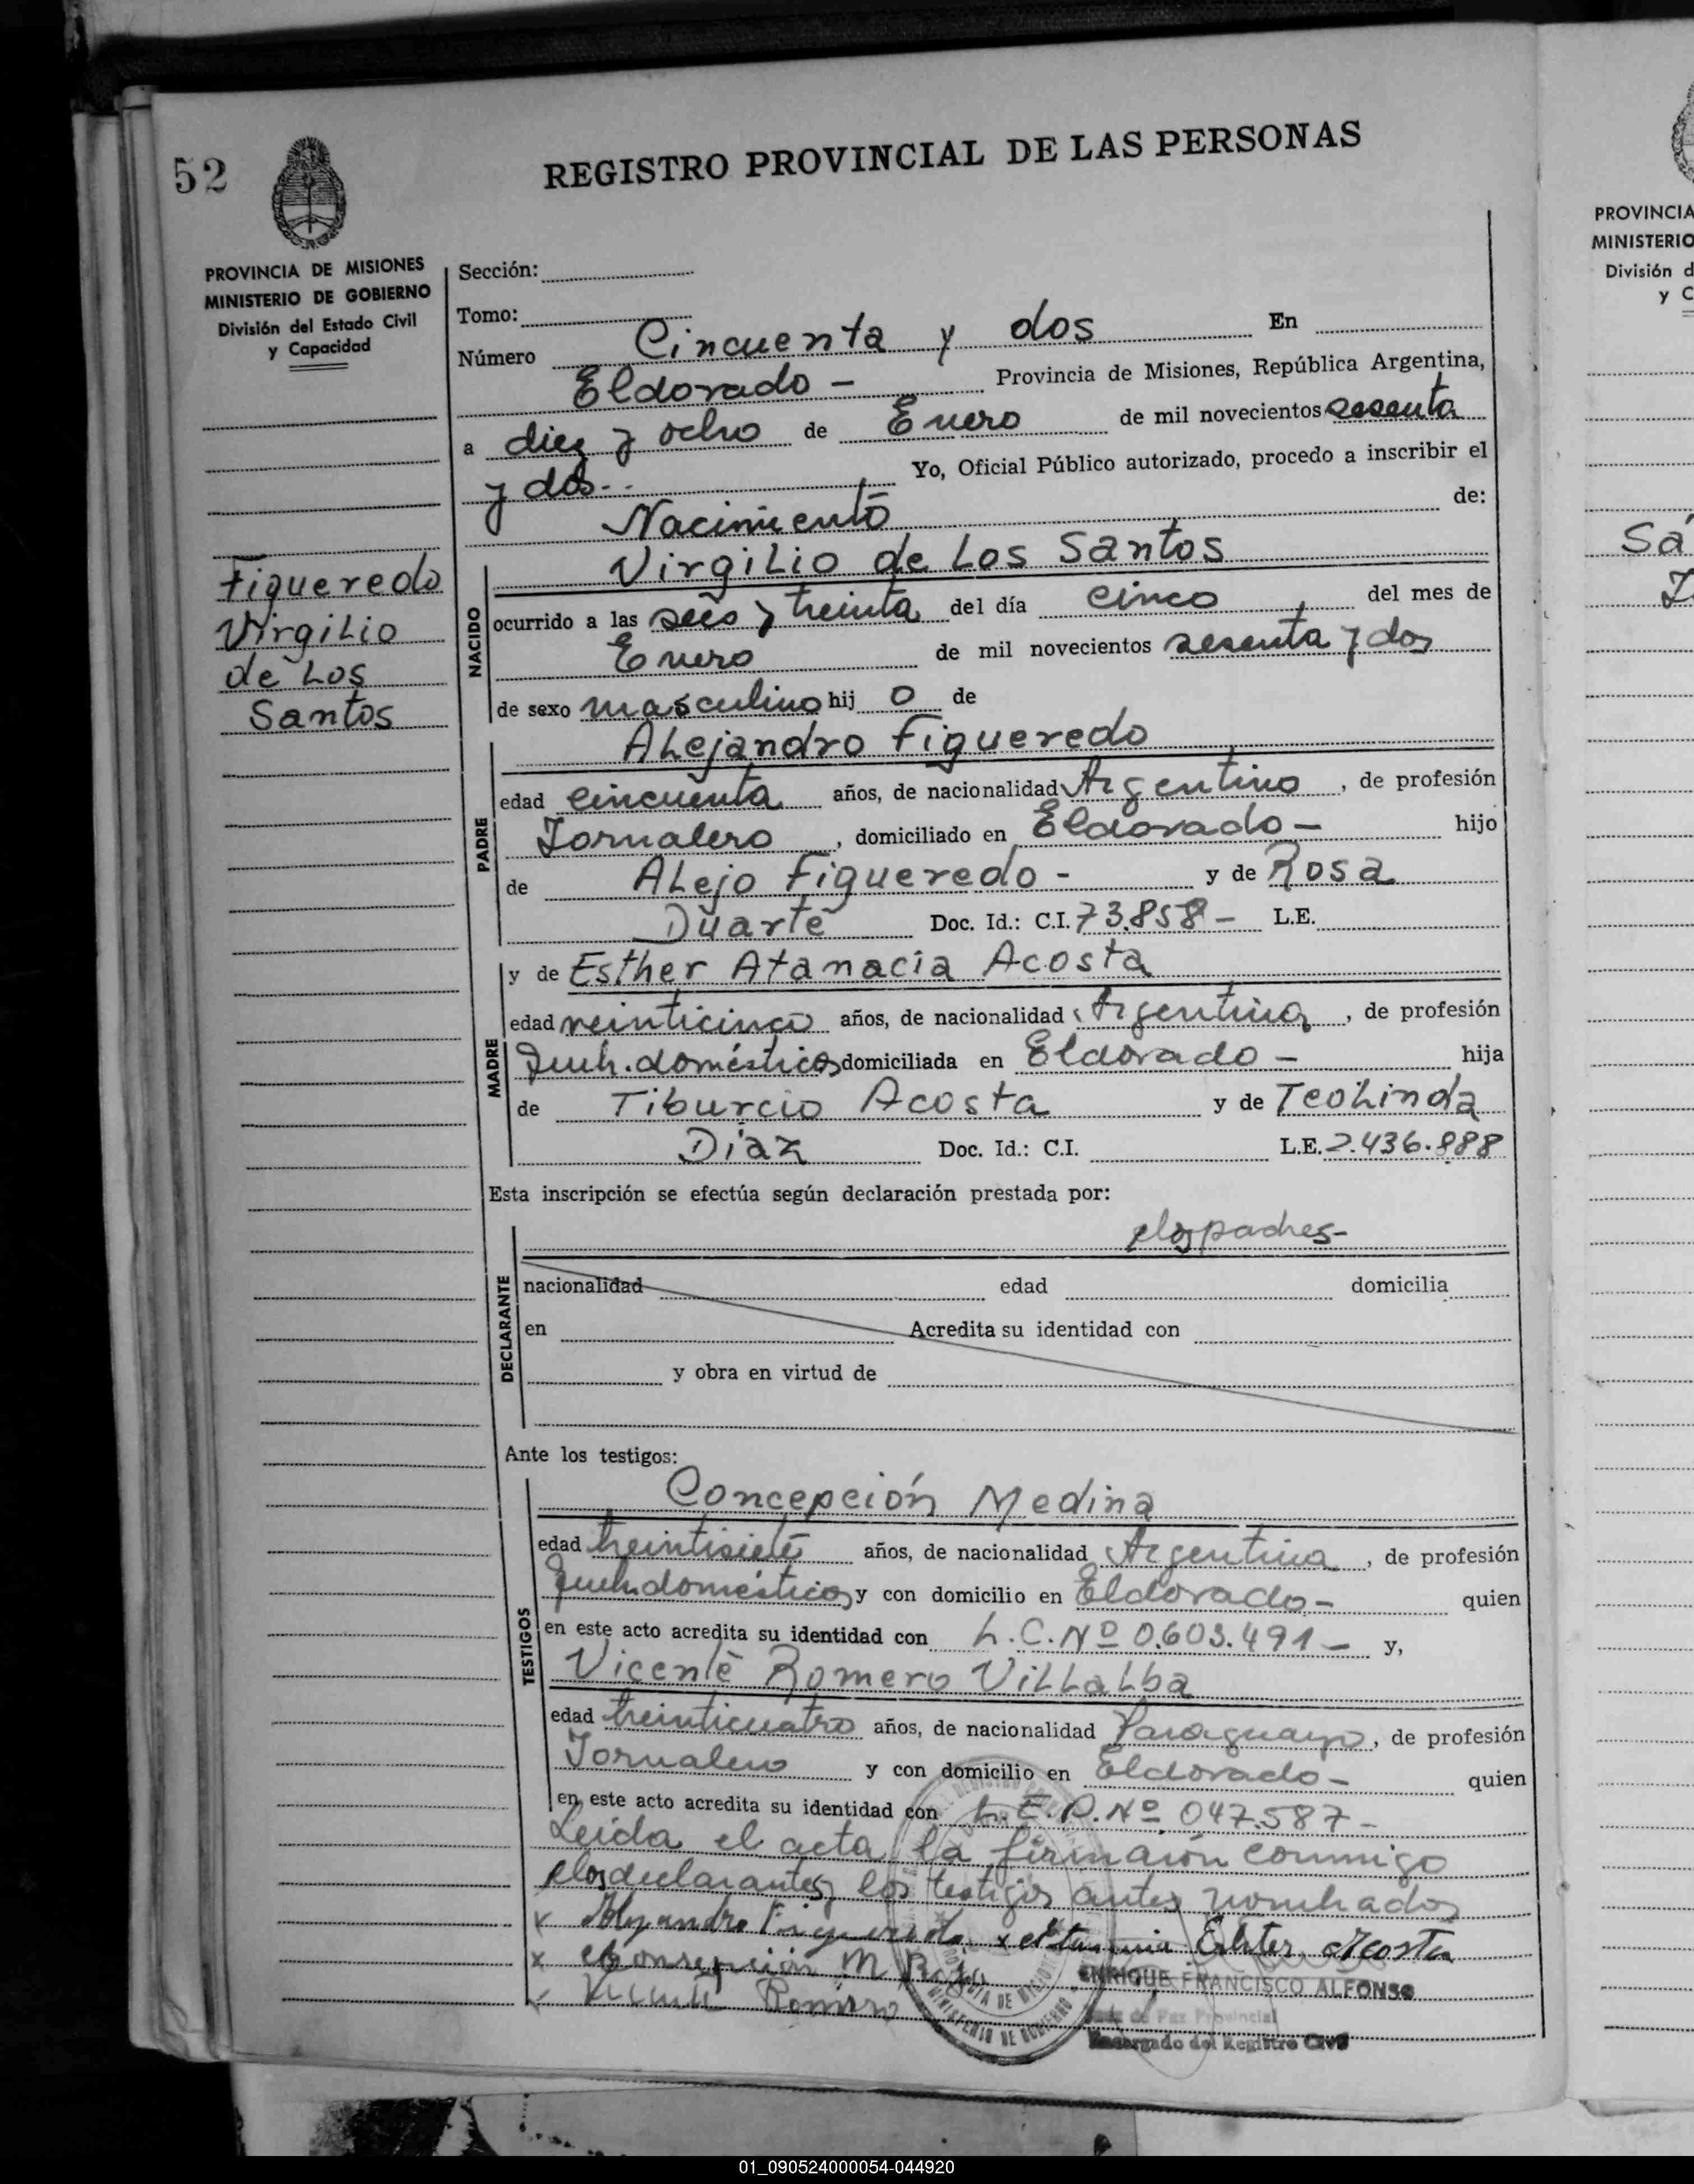 52
REGISTRO PROVINCIAL DE LAS PERSONAS
PROVINCIA DE MISIONES
MINISTERIO DE GOBIERNO
División del Estado Civil
y Capacidad
Figueredo
Virgilio
de Los
Santos
Sección:
Tomo:
Número Cincuenta y dos En
Eldorado - Provincia de Misiones, República Argentina,
a diez y ocho de Enero de mil novecientos sesenta
y dos.. Yo, Oficial Público autorizado, procedo a inscribir el
Nacimiento de:
NACIDO
Virgilio de Los Santos
ocurrido a las seis y treinta del día cinco del mes de
Enero de mil novecientos sesenta y dos
de sexo masculino hij o de
PADRE
Alejandro Figueredo
edad cincuenta años, de nacionalidad Argentino, de profesión
Jornalero, domiciliado en Eldorado - hijo
de Alejo Figueredo - y de Rosa
Duarte Doc. Id.: C.I. 73.858 - L.E.
MADRE
y de Esther Atanacia Acosta
edad veinticinco años, de nacionalidad Argentina, de profesión
domiciliada en Eldorado - hija
de Tiburcio Acosta y de Teolinda
Díaz Doc. Id.: C.I. L.E. 2.436.888
Esta inscripción se efectúa según declaración prestada por:
DECLARANTE
padres-
nacionalidad edad domicilia
en Acredita su identidad con
y obra en virtud de
Ante los testigos:
TESTIGOS
Concepción Medina
edad treintisiete años, de nacionalidad Argentina, de profesión
y con domicilio en Eldorado - quien
en este acto acredita su identidad con L.C.Nº 0.603.491 - y,
Vicente Romero Villalba
edad treinticuatro años, de nacionalidad Paraguayo, de profesión
Jornalero y con domicilio en Eldorado - quien
en este acto acredita su identidad con Nº 047.587 -
Leída el acta la firmaron conmigo
declarantes y los testigos antes nombrados
x Esther Acosta
x
Vicente Romero
ENRIQUE FRANCISCO ALFONSO
Juez de Paz Provincial
Encargado del Registro Civil
MINISTERIO DE GOBIERNO
PROVINCIA
MINISTERIO
División d
y C
Sá
01_090524000054-044920